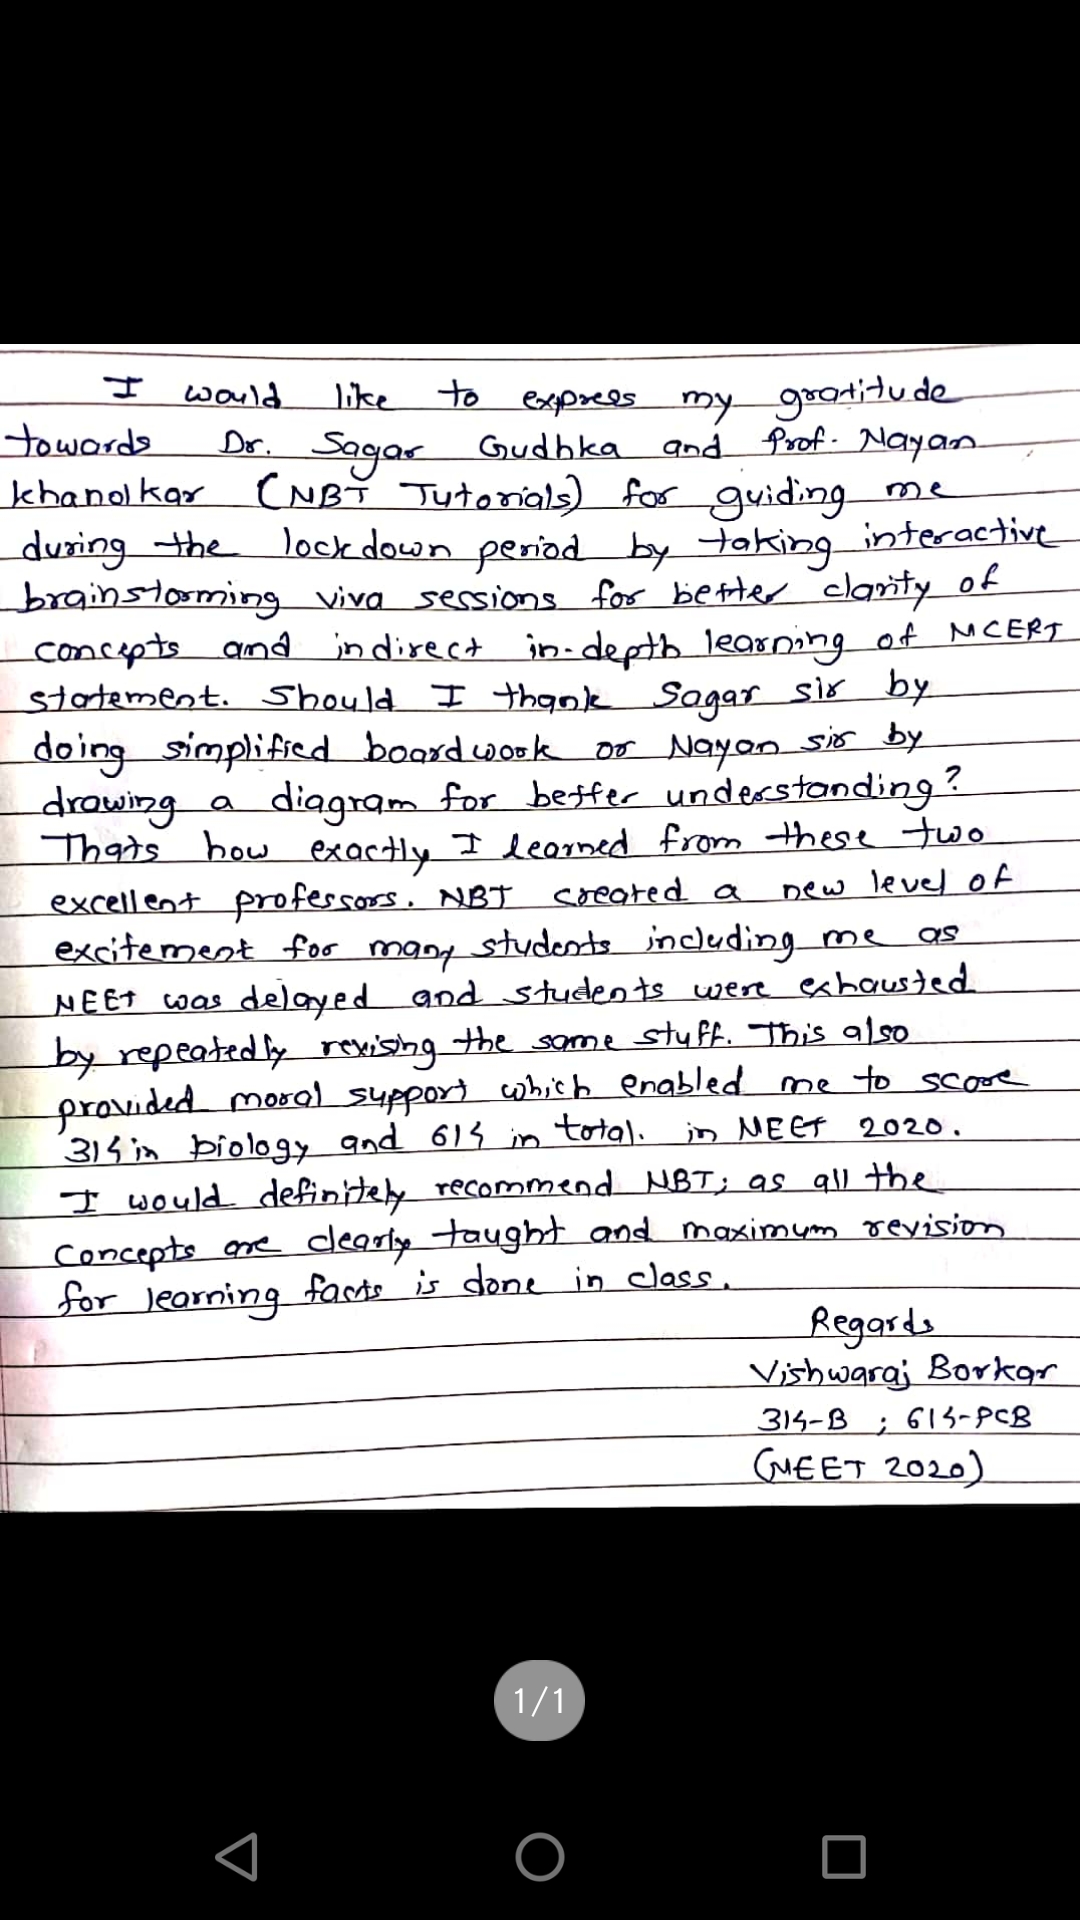 I would like to express my gratitude
towards Dr. Sagar Gudhka and Prof. Nayan
Khanolkar (NBT Tutorials) for guiding me
during the lockdown period by taking interactive
brainstorming viva sessions for better clarity of
concepts and indirect in-depth learning of NCERT
statement. Should I thank Sagar sir by
doing simplified boardwork or Nayan sir by
drawing a diagram for better understanding?
Thats how exactly I learned from these two
excellent professors. NBT created a new level of
excitement for many students including me as
NEET was delayed and students were exhausted
by repeatedly revising the same stuff. This also
provided moral support which enabled me to score
314 in biology and 614 in total. in NEET 2020.
I would definitely recommend NBT; as all the
concepts are clearly taught and maximum revision
for learning facts is done in class.
Regards
Vishwaraj Borkar
314-B ; 614-PCB
(NEET 2020)
1/1